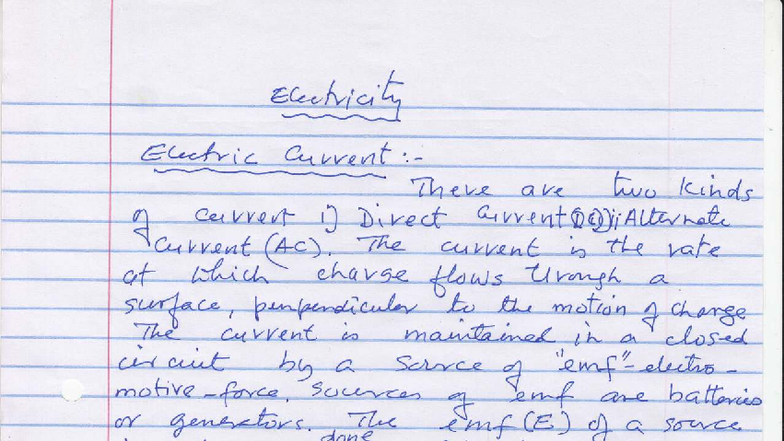 Electricity
Electric Current :-
There are two kinds
of current i) Direct Current (DC) ii) Alternate
Current (AC). The current is the rate
at which charge flows through a
surface, perpendicular to the motion of charge
The current is maintained in a closed
circuit by a source of "emf" - electro-
motive-force. Sources of emf are batteries
or generators. The emf (E) of a source
done